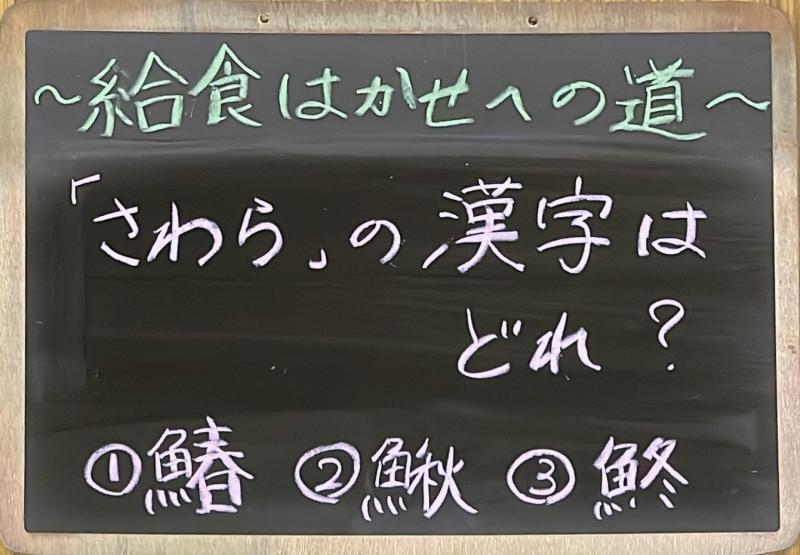 ～給食はかせへの道～
「さわら」の漢字は
どれ？
①鰆 ②鰍 ③鮗